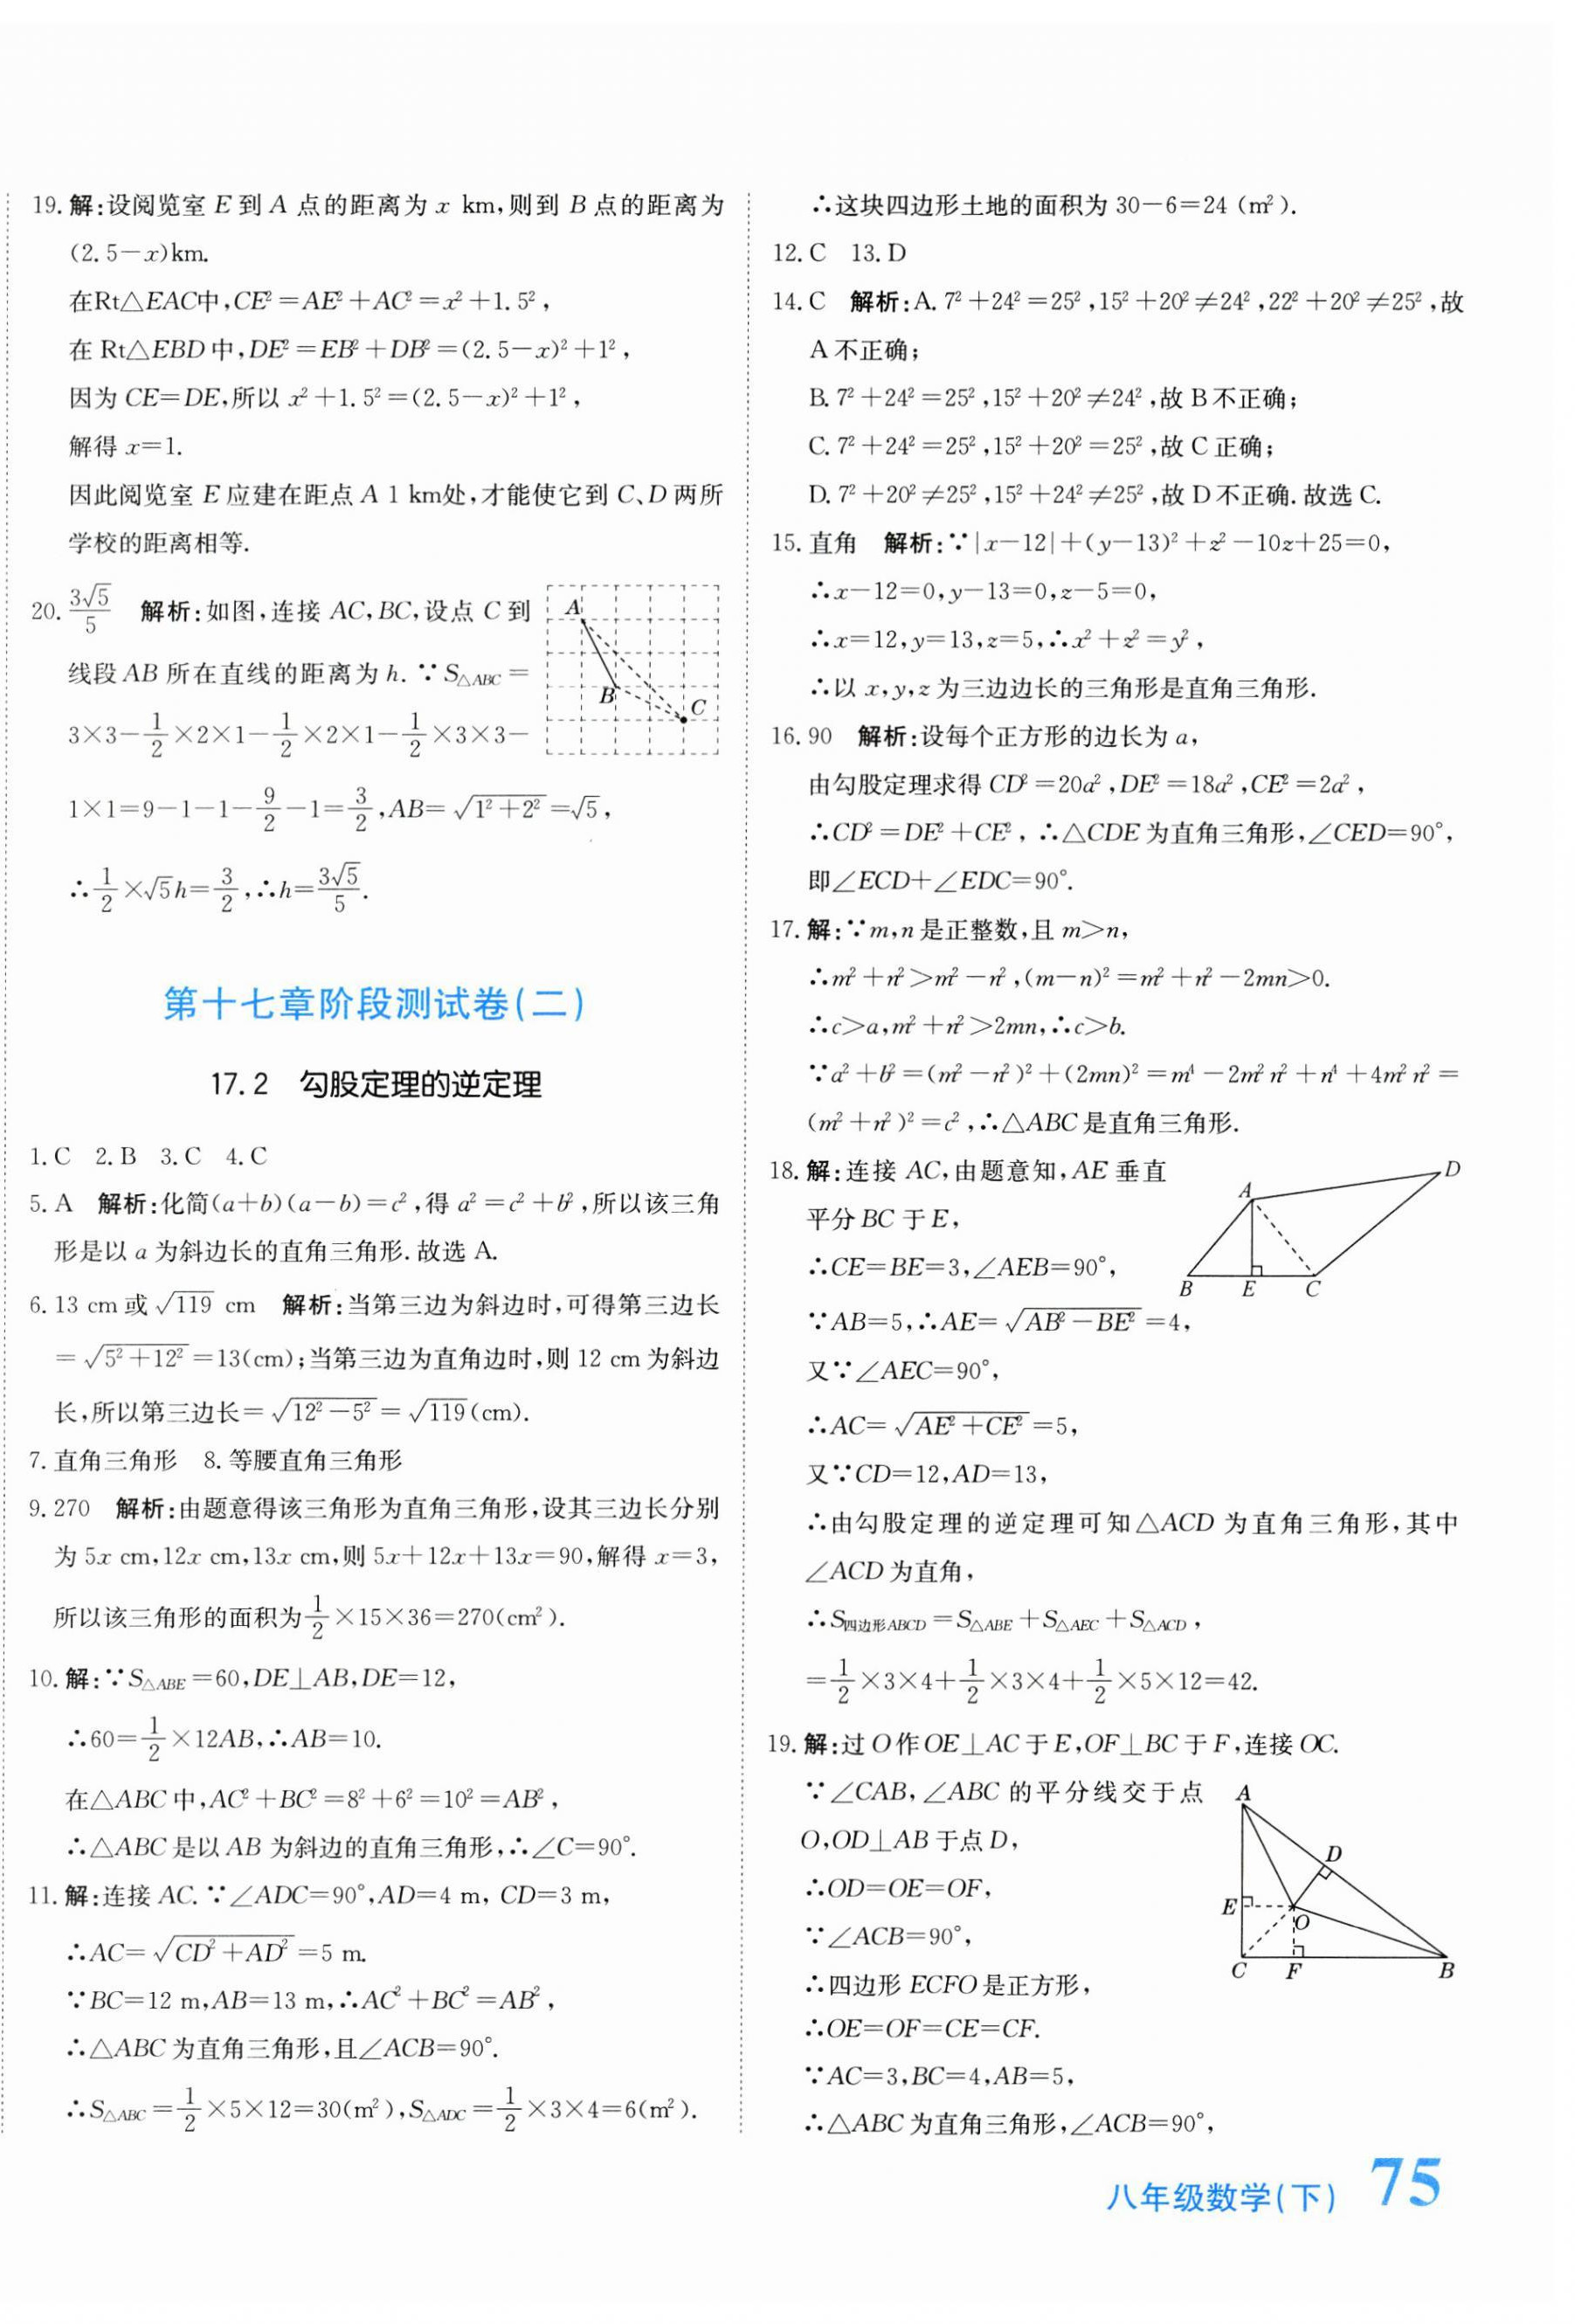 19. 解:设阅览室 E 到 A 点的距离为 x km,则到 B 点的距离为
(2.5－x)km.
在Rt△EAC中,CE²＝AE²＋AC²＝x²＋1.5²,
在 Rt△EBD 中,DE²＝EB²＋DB²＝(2.5－x)²＋1²,
因为 CE＝DE,所以 x²＋1.5²＝(2.5－x)²＋1²,
解得 x＝1.
因此阅览室 E 应建在距点 A 1 km处,才能使它到 C、D 两所
学校的距离相等.
20. 3√5/5 解析:如图,连接 AC,BC,设点 C 到
线段 AB 所在直线的距离为 h. ∵S△ABC＝
3×3－1/2×2×1－1/2×2×1－1/2×3×3－
1×1＝9－1－1－9/2－1＝3/2,AB＝√(1²＋2²)＝√5,
∴1/2×√5h＝3/2,∴h＝3√5/5.
A
B
C
第十七章阶段测试卷(二)
17.2 勾股定理的逆定理
1. C 2. B 3. C 4. C
5. A 解析:化简(a＋b)(a－b)＝c²,得 a²＝c²＋b²,所以该三角
形是以 a 为斜边长的直角三角形.故选 A.
6. 13 cm 或 √119 cm 解析:当第三边为斜边时,可得第三边长
＝√(5²＋12²)＝13(cm);当第三边为直角边时,则 12 cm 为斜边
长,所以第三边长＝√(12²－5²)＝√119(cm).
7. 直角三角形 8. 等腰直角三角形
9. 270 解析:由题意得该三角形为直角三角形,设其三边长分别
为 5x cm,12x cm,13x cm,则 5x＋12x＋13x＝90,解得 x＝3,
所以该三角形的面积为1/2×15×36＝270(cm²).
10. 解:∵S△ABE＝60,DE⊥AB,DE＝12,
∴60＝1/2×12AB,∴AB＝10.
在△ABC 中,AC²＋BC²＝8²＋6²＝10²＝AB²,
∴△ABC 是以 AB 为斜边的直角三角形,∴∠C＝90°.
11. 解:连接 AC. ∵∠ADC＝90°,AD＝4 m, CD＝3 m,
∴AC＝√(CD²＋AD²)＝5 m.
∵BC＝12 m,AB＝13 m,∴AC²＋BC²＝AB²,
∴△ABC 为直角三角形,且∠ACB＝90°.
∴S△ABC＝1/2×5×12＝30(m²),S△ADC＝1/2×3×4＝6(m²).
∴这块四边形土地的面积为 30－6＝24 (m²).
12. C 13. D
14. C 解析:A. 7²＋24²＝25²,15²＋20²≠24²,22²＋20²≠25²,故
A 不正确;
B. 7²＋24²＝25²,15²＋20²≠24²,故 B 不正确;
C. 7²＋24²＝25²,15²＋20²＝25²,故 C 正确;
D. 7²＋20²≠25²,15²＋24²≠25²,故 D 不正确.故选 C.
15. 直角 解析:∵|x－12|＋(y－13)²＋z²－10z＋25＝0,
∴x－12＝0,y－13＝0,z－5＝0,
∴x＝12,y＝13,z＝5,∴x²＋z²＝y²,
∴以 x,y,z 为三边边长的三角形是直角三角形.
16. 90 解析:设每个正方形的边长为 a,
由勾股定理求得 CD²＝20a²,DE²＝18a²,CE²＝2a²,
∴CD²＝DE²＋CE², ∴△CDE 为直角三角形,∠CED＝90°,
即∠ECD＋∠EDC＝90°.
17. 解:∵m,n 是正整数,且 m>n,
∴m²＋n²>m²－n²,(m－n)²＝m²＋n²－2mn>0.
∴c>a,m²＋n²>2mn,∴c>b.
∵a²＋b²＝(m²－n²)²＋(2mn)²＝m⁴－2m²n²＋n⁴＋4m²n²＝
(m²＋n²)²＝c²,∴△ABC 是直角三角形.
18. 解:连接 AC,由题意知,AE 垂直
平分 BC 于 E,
∴CE＝BE＝3,∠AEB＝90°,
∵AB＝5,∴AE＝√(AB²－BE²)＝4,
又∵∠AEC＝90°,
∴AC＝√(AE²＋CE²)＝5,
又∵CD＝12,AD＝13,
∴由勾股定理的逆定理可知△ACD 为直角三角形,其中
∠ACD 为直角,
∴S四边形ABCD＝S△ABE＋S△AEC＋S△ACD,
＝1/2×3×4＋1/2×3×4＋1/2×5×12＝42.
A
D
B
E
C
19. 解:过 O 作 OE⊥AC 于 E,OF⊥BC 于 F,连接 OC.
∵∠CAB,∠ABC 的平分线交于点
O,OD⊥AB 于点 D,
∴OD＝OE＝OF,
∵∠ACB＝90°,
∴四边形 ECFO 是正方形,
∴OE＝OF＝CE＝CF.
∵AC＝3,BC＝4,AB＝5,
∴△ABC 为直角三角形,∠ACB＝90°,
A
D
E
O
C
F
B
八年级数学(下) 75